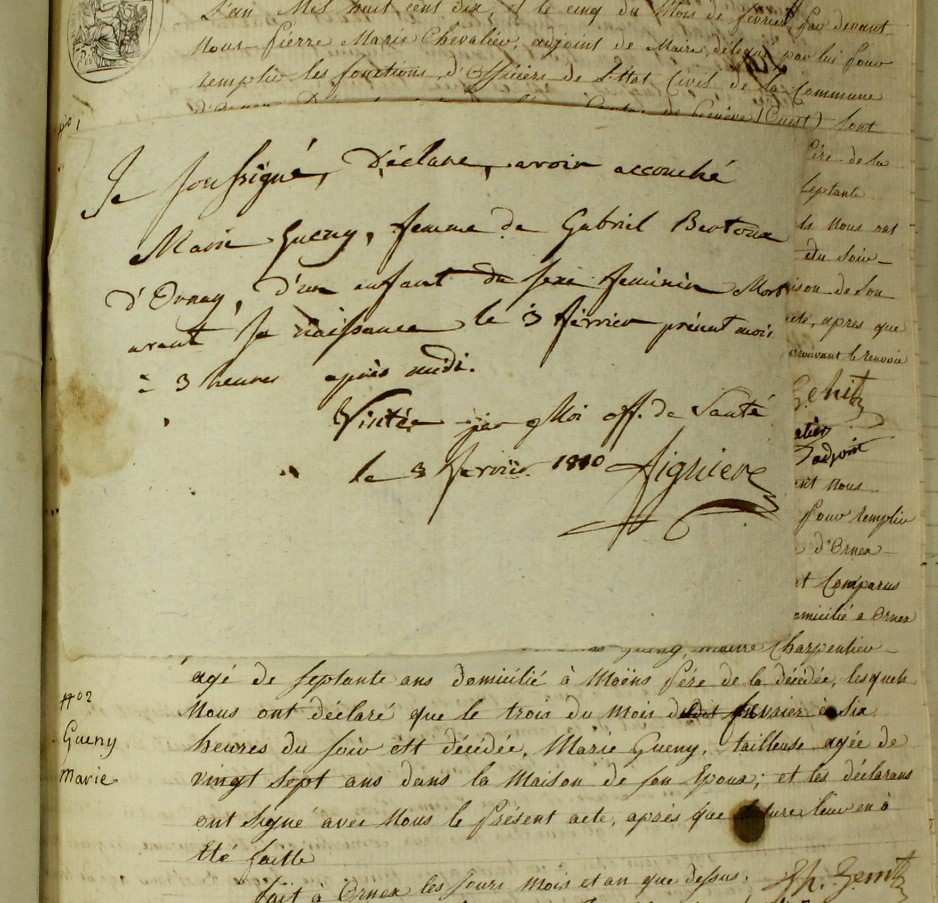 L'an Mil huit cent dix, et le cinq du Mois de fevrier par devant
Nous Pierre Marie Chevalier, adjoint de Maire, délégué par lui pour
remplir les fonctions d'Officiers de l'Etat Civil de la Commune
de Genève (Ouest) Sont
No 1
Je soussigné, Déclare, avoir accouché
Marie Gueny, femme de Gabriel
d'Ornex, d'un enfant du sexe feminin Mort
avant sa naissance le 3 février présent mois
à 3 heures après midi.
Visitée par Moi off. de Santé
le 3 fevrier 1810
Père de la
septante
Nous ont
du Soir
maison de son
acte, après que
le renvoie
adjoint
Nous
Pour remplir
d'Ornex
Comparus
domicilié a Ornex
Gueny, maitre Charpentier
agé de septante ans domicilié à Moëns Père de la décédée, lesquels
Nous ont déclaré que le trois du Mois de fevrier à six
No 2
Gueny
Marie
heures du Soir est décédée, Marie Gueny, tailleuse agée de
vingt sept ans dans la Maison de son Epoux; et les déclarans
ont Signé avec Nous le Présent acte, après que lecture leur en à
Eté faitte
fait à Ornex les Jours Mois et an que dessus.